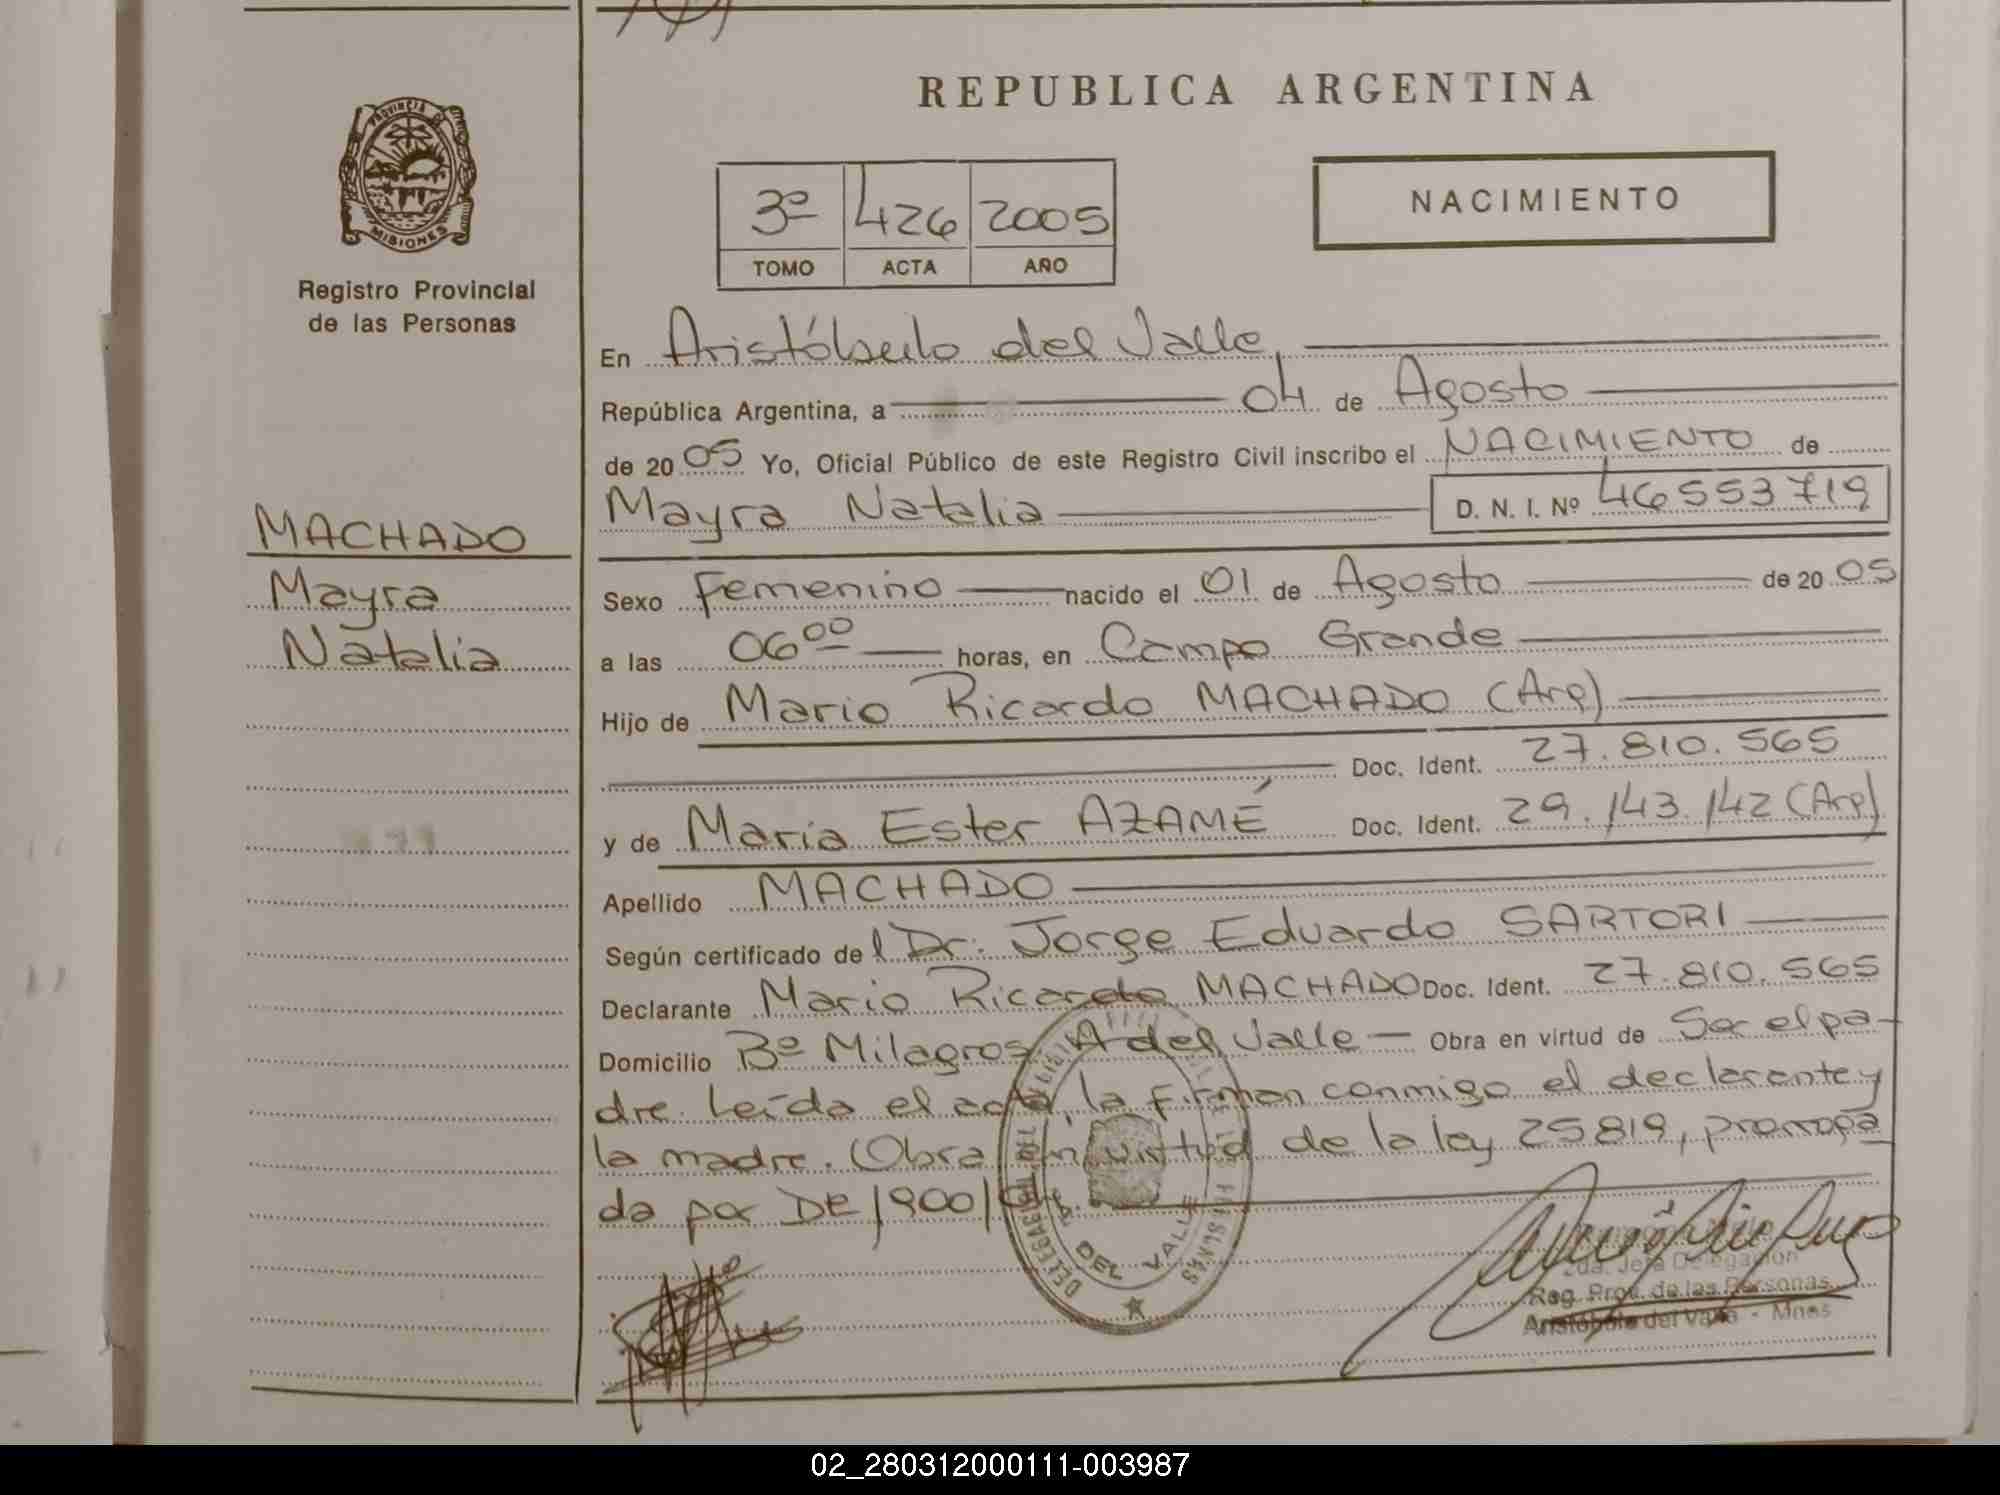 REPUBLICA ARGENTINA
PROVINCIA DE
MISIONES
Registro Provincial
de las Personas
3º 426 2005
TOMO ACTA AÑO
NACIMIENTO
En Aristóbulo del Valle,
República Argentina, a 04 de Agosto
de 2005 Yo, Oficial Público de este Registro Civil inscribo el NACIMIENTO de
Mayra Natalia D. N. I. Nº 46553719
MACHADO
Mayra
Natalia
Sexo Femenino nacido el 01 de Agosto de 2005
a las 06⁰⁰ horas, en Campo Grande
Hijo de Mario Ricardo MACHADO (Arg)
Doc. Ident. 27.810.565
y de María Ester AZAMÉ Doc. Ident. 29.143.142 (Arg)
Apellido MACHADO
Según certificado del Dr. Jorge Eduardo SARTORI
Declarante Mario Ricardo MACHADO Doc. Ident. 27.810.565
Domicilio Bº Milagros. A del Valle Obra en virtud de Ser el pa-
dre. Leída el acta, la firman conmigo el declarante y
la madre. (Obra en virtud de la ley 25819, prorroga
da por DE 1900/
DEL VALLE
2da. Jefa Delegación
Reg. Prov. de las Personas
Aristóbulo del Valle - Mnes
02_280312000111-003987